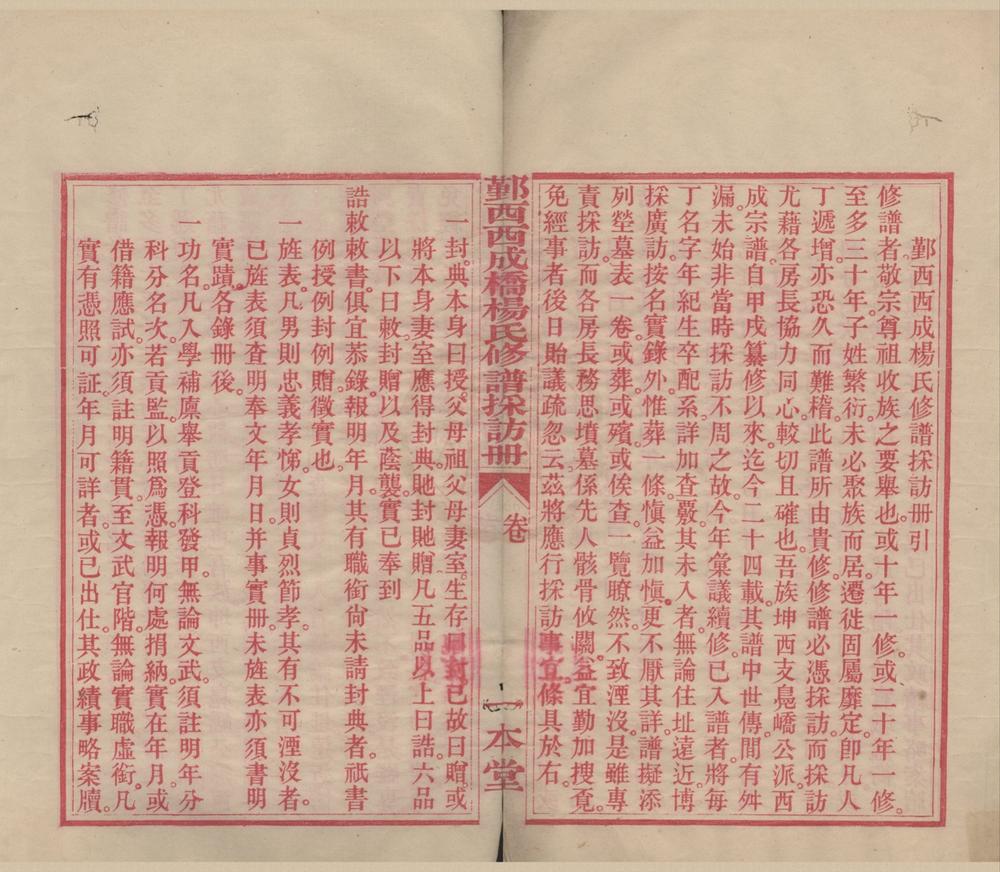 鄞西西成楊氏修譜採訪册引
修譜者。敬宗尊祖收族之要舉也。或十年一修。或二十年一修。
至多三十年。子姓繁衍。未必聚族而居。遷徙固屬靡定。卽凡人
丁遞增。亦恐久而難稽。此譜所由貴修。修譜必憑採訪。而採訪
尤藉各房長協力同心。較切且確也。吾族坤西支鳧嶠公派西
成宗譜。自甲戌纂修以來。迄今二十四載。其譜中世傳。間有舛
漏。未始非當時採訪不周之故。今年彙議續修。已入譜者。將每
丁名字年紀生卒配系。詳加查覈。其未入者。無論住址遠近。博
採廣訪。按名實錄外。惟葬一條。愼益加愼。更不厭其詳。譜擬添
列塋墓表一卷。或葬或殯或俟查。一覽瞭然。不致湮沒。是雖專
責採訪。而各房長務思墳墓係先人骸骨攸關。益宜勤加搜覓。
免經事者後日貽議疏忽云。茲將應行採訪事宜。條具於右。
鄞西西成橋楊氏修譜採訪册
卷
一本堂
一封典。本身曰授。父母祖父母妻室。生存曰封。已故曰贈。或
將本身妻室應得封典。貤封貤贈。凡五品以上曰誥。六品
以下曰敕。封贈以及蔭襲。實已奉到
誥敕敕書。俱宜恭錄。報明年月。其有職銜尙未請封典者。祇書
例授例封例贈。徵實也。
一旌表。凡男則忠義孝悌。女則貞烈節孝。其有不可湮沒者。
已旌表須查明奉文年月日。并事實册。未旌表亦須書明
實蹟。各錄册後。
一功名。凡入學補廩舉貢登科發甲。無論文武。須註明年分
科分名次。若貢監。以照爲憑。報明何處捐納。實在年月。或
借籍應試。亦須註明籍貫。至文武官階。無論實職虛銜。凡
實有憑照可証。年月可詳者。或已出仕。其政績事略案牘。